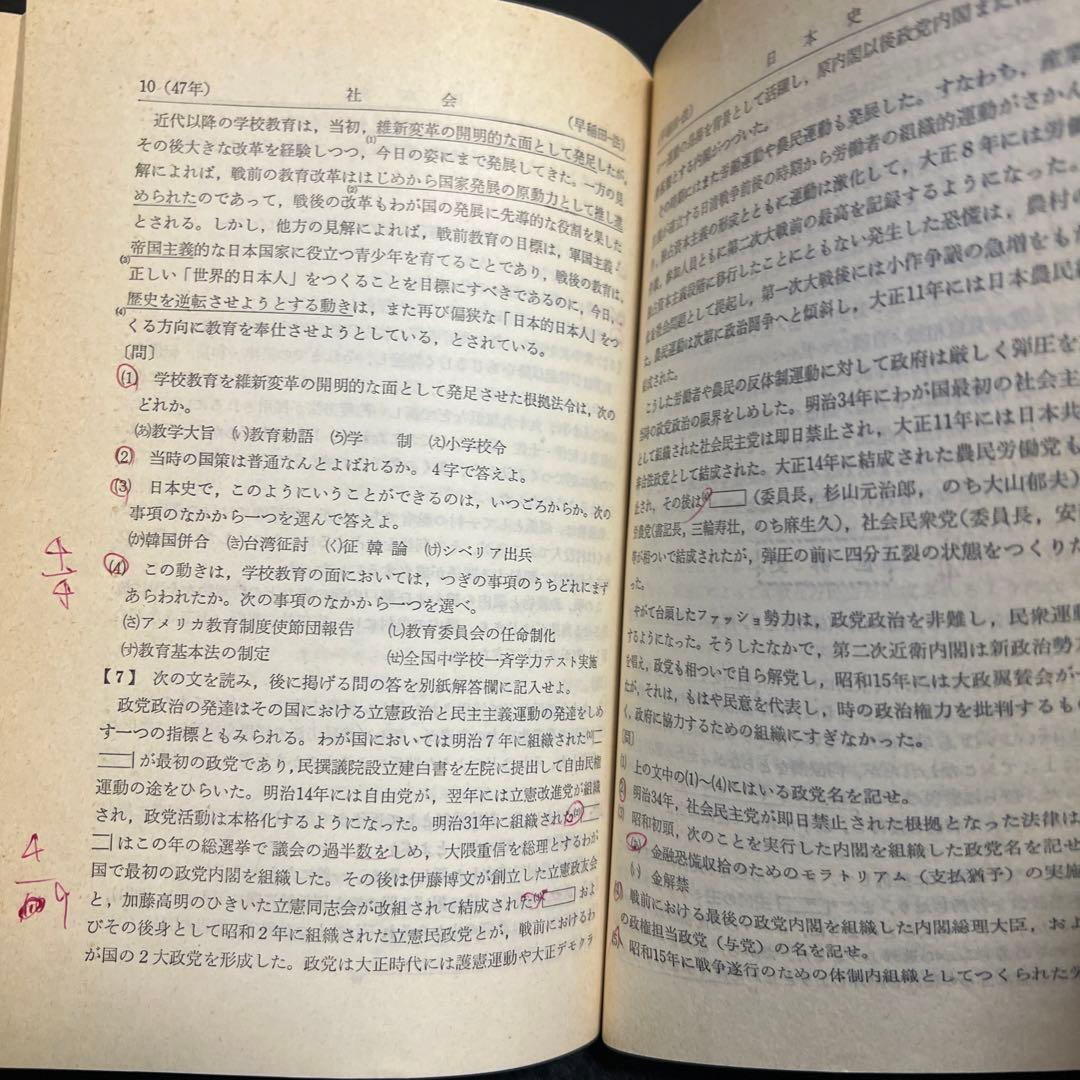 10 (47年) 社 会 (早稲田一法)
近代以降の学校教育は，当初，維新変革の開明的な面として発足したが，
(1)
その後大きな改革を経験しつつ，今日の姿にまで発展してきた。一方の見
解によれば，戦前の教育改革ははじめから国家発展の原動力として推し進
(2)
められたのであって，戦後の改革もわが国の発展に先導的な役割を果した
とされる。しかし，他方の見解によれば，戦前教育の目標は，軍国主義，
帝国主義的な日本国家に役立つ青少年を育てることであり，戦後の教育は，
(3)
正しい「世界的日本人」をつくることを目標にすべきであるのに，今日，
歴史を逆転させようとする動きは，また再び偏狭な「日本的日本人」をつ
(4)
くる方向に教育を奉仕させようとしている，とされている。
〔問〕
(1) 学校教育を維新変革の開明的な面として発足させた根拠法令は，次の
どれか。
(あ)教学大旨 (い)教育勅語 (う)学 制 (え)小学校令
(2) 当時の国策は普通なんとよばれるか。4字で答えよ。
(3) 日本史で，このようにいうことができるのは，いつごろからか。次の
事項のなかから一つを選んで答えよ。
(か)韓国併合 (き)台湾征討 (く)征 韓 論 (け)シベリア出兵
(4) この動きは，学校教育の面においては，つぎの事項のうちどれにまず
あらわれたか。次の事項のなかから一つを選べ。
(さ)アメリカ教育制度使節団報告 (し)教育委員会の任命制化
(す)教育基本法の制定 (せ)全国中学校一斉学力テスト実施
【7】 次の文を読み，後に掲げる問の答を別紙解答欄に記入せよ。
政党政治の発達はその国における立憲政治と民主主義運動の発達をしめ
す一つの指標ともみられる。わが国においては明治7年に組織された(1)
が最初の政党であり，民撰議院設立建白書を左院に提出して自由民権
運動の途をひらいた。明治14年には自由党が，翌年には立憲改進党が組織
され，政党活動は本格化するようになった。明治31年に組織された(2)
はこの年の総選挙で議会の過半数をしめ，大隈重信を総理とするわが
国で最初の政党内閣を組織した。その後は伊藤博文が創立した立憲政友会
と，加藤高明のひきいた立憲同志会が改組されて結成された およ
びその後身として昭和2年に組織された立憲民政党とが，戦前におけるわ
が国の2大政党を形成した。政党は大正時代には護憲運動や大正デモクラ
4
4
4
9
日 本 史
を背景として活躍し，原内閣以後政党内閣また
とする内閣がつづいた。
にはまた労働運動や農民運動も発展した。すなわち，産業
する日清戦争前後の時期から労働者の組織的運動がさかん
資本主義の形成とともに運動は激化して，大正8年には労働
参加人員ともに第二次大戦前の最高を記録するようになった。
資本主義段階に移行したことにともない発生した恐慌は，農村の
社会問題として提起し，第一次大戦後には小作争議の急増をも
農民運動は次第に政治闘争へと傾斜し，大正11年には日本農民組
結成された。
こうした労働者や農民の反体制運動に対して政府は厳しく弾圧を
政党政治の限界をしめした。明治34年にわが国最初の社会主
として組織された社会民主党は即日禁止され，大正11年には日本共
政党として結成された。大正14年に結成された農民労働党も
止され，その後は (委員長，杉山元治郎， のち大山郁夫)
労農党(書記長，三輪寿壮，のち麻生久)，社会民衆党(委員長，安
等が相ついで結成されたが，弾圧の前に四分五裂の状態をつくりだ
った。
やがて台頭したファッショ勢力は，政党政治を非難し，民衆運動
するようになった。そうしたなかで，第二次近衛内閣は新政治勢
を唱え，政党も相ついで自ら解党し，昭和15年には大政翼賛会が
たが，それは，もはや民意を代表し，時の政治権力を批判するも
く，政府に協力するための組織にすぎなかった。
〔問〕
(1) 上の文中の(1)～(4)にはいる政党名を記せ。
(2) 明治34年，社会民主党が即日禁止された根拠となった法律は
(3) 昭和初頭，次のことを実行した内閣を組織した政党名を記せ
(い) 金融恐慌収拾のためのモラトリアム (支払猶予) の実施
(ろ) 金解禁
(4) 戦前における最後の政党内閣を組織した内閣総理大臣，およ
の政権担当政党 (与党) の名を記せ。
(5) 昭和15年に戦争遂行のための体制内組織としてつくられた労